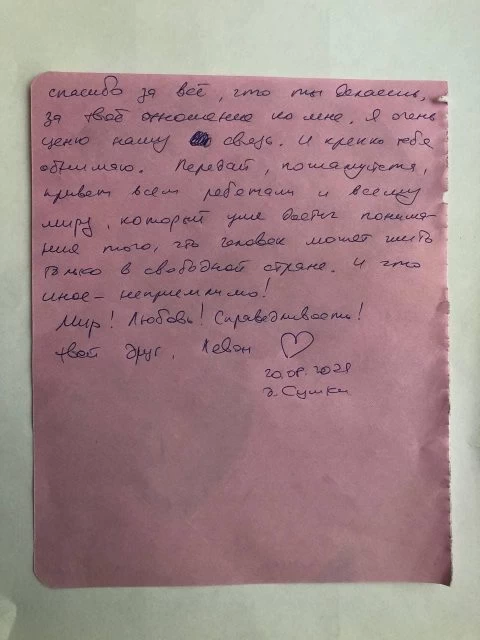 спасибо за всё, что ты делаешь,
за твоё отношение ко мне. Я очень
ценю нашу связь. И крепко тебя
обнимаю. Передай, пожалуйста,
привет всем ребятам и всему
миру, который уже достиг понима-
ния того, что человек может жить
только в свободной стране. И что
иное – неприемлимо!
Мир! Любовь! Справедливость!
твой друг, Левон ♡
20.08.2021
г. Сумки